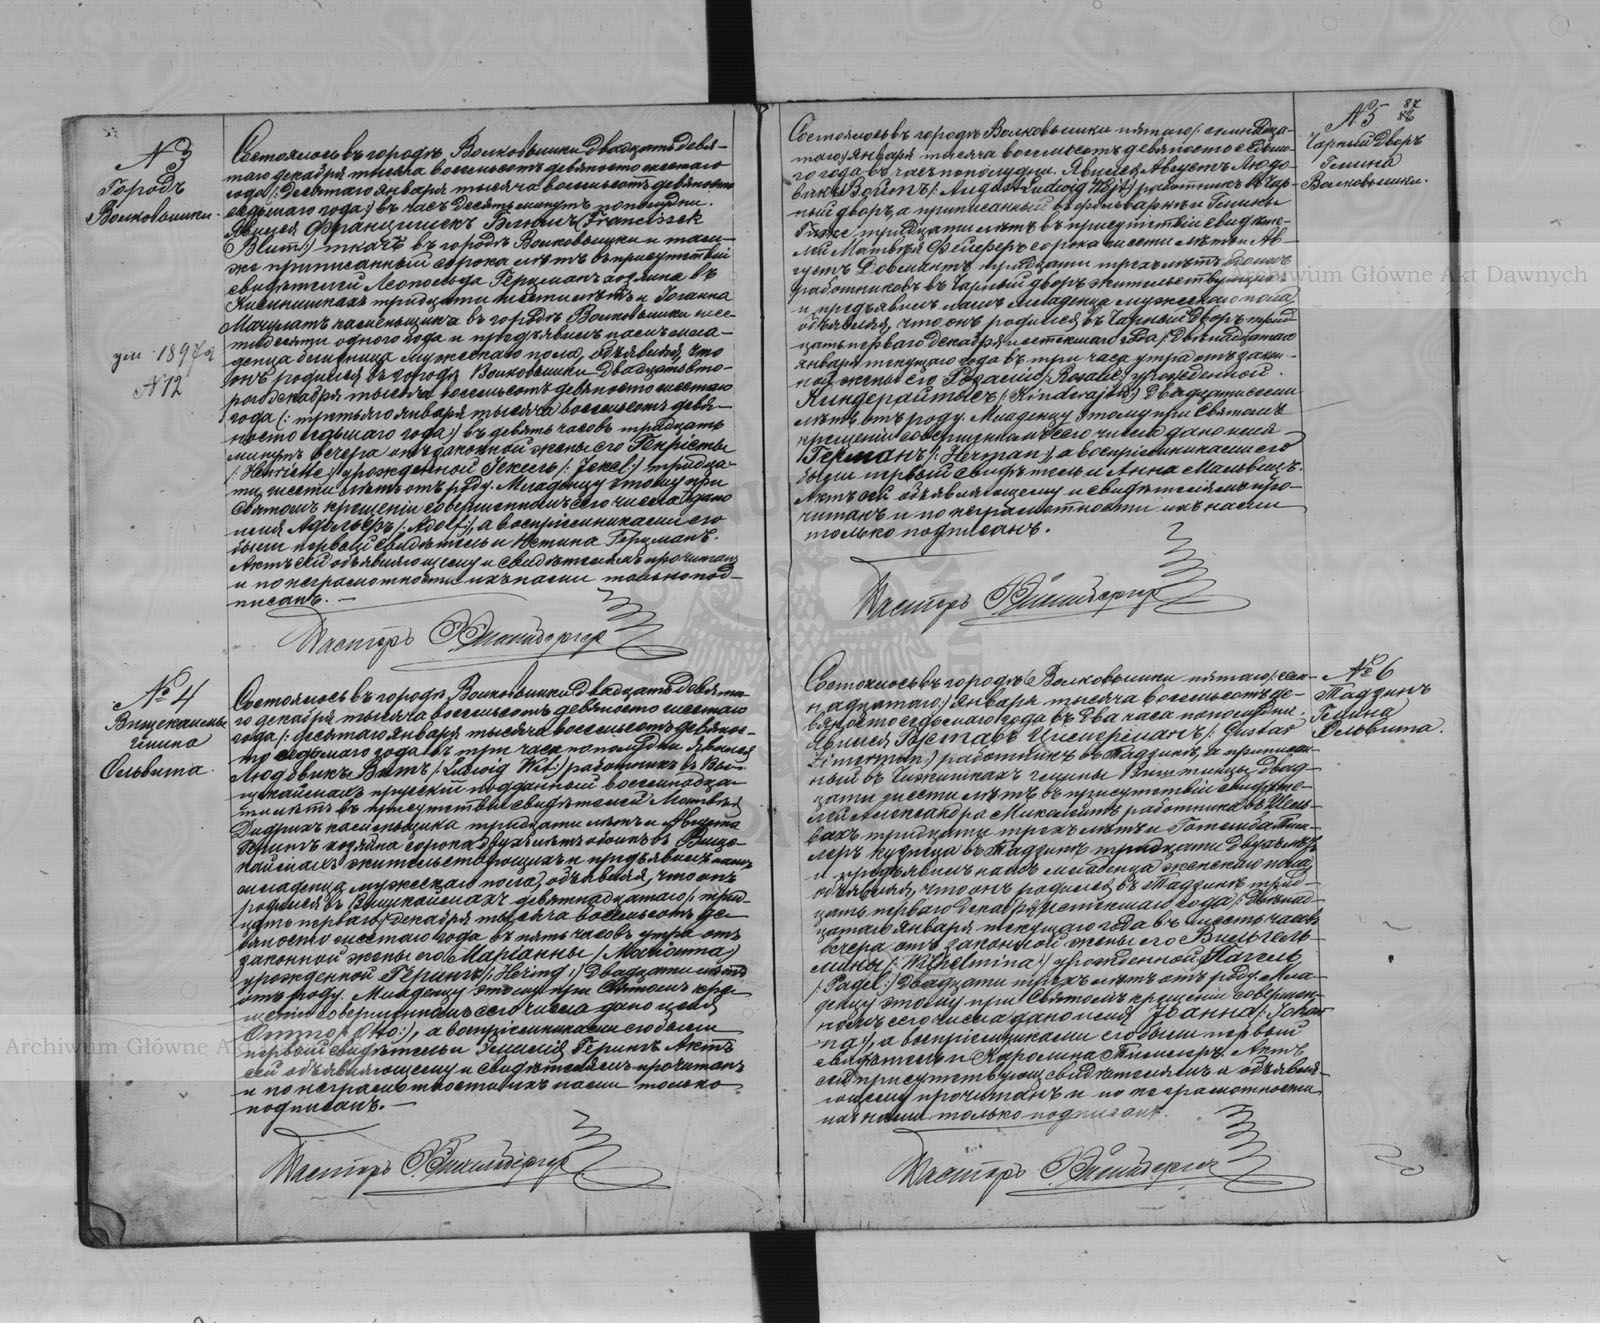 87
№ 3
Городъ
Волковышки.
ум. 1897 г
№ 12
Состоялось въ городѣ Волковышки двадцать девя-
таго декабря тысяча восемьсотъ девяносто шестаго
года (: Десятаго января тысяча восемьсотъ девяносто
седьмаго года :) въ часъ десять минутъ пополудни.
Явился Францишекъ Блюмъ (: Franciszek
Blum :) ткачъ въ городѣ Волковышки и там-
же приписанный сорока лѣтъ въ присутствіи
свидѣтелей Леопольда Герцманъ хозяина въ
тридцати шести лѣтъ и Іоганна
каменьщика въ городѣ Волковышки шес-
тидесяти одного года и предъявилъ намъ мла-
денца близнеца мужескаго пола, объявляя, что
онъ родился въ городѣ Волковышки двадцать вто-
раго декабря тысяча восемьсотъ девяносто шестаго
года (: третьяго января тысяча восемьсотъ девя-
носто седьмаго года :) въ девять часовъ тридцать
минутъ вечера отъ законной жены его Генріеты
(: Henriette :) урожденной Іекель (: Jekel :) тридца-
ти шести лѣтъ отъ роду. Младенцу этому при
Святомъ крещеніи совершенномъ сего числа дано
имя Адольфъ (: Adolf :), а воспріемниками его
были первый свидѣтель и Юстина Герцманъ.
Актъ сей объявляющему и свидѣтелямъ прочитанъ
и по неграмотности ихъ нами только под-
писанъ. —
Пасторъ
№ 4
гмина
Ольвита.
Состоялось въ городѣ Волковышки двадцать девята-
го декабря тысяча восемьсотъ девяносто шестаго
года (: десятаго января тысяча восемьсотъ девянос-
то седьмаго года въ три часа пополудни. Явился
Людовикъ Витъ (: Ludwig Wit :) работникъ въ Виш-
прусскій подданный восемнадца-
ти лѣтъ въ присутствіи свидѣтелей Матвѣя
каменьщика тридцати лѣтъ и Августа
хозяина сорока двухъ лѣтъ обоихъ въ Више-
жительствующихъ и предъявилъ намъ
младенца мужескаго пола, объявляя, что онъ
родился въ девятнадцатаго (: трид-
цать перваго) декабря тысяча восемьсотъ де-
вяносто шестаго года въ пять часовъ утра отъ
законной жены его Маріанны (: Marianna :)
урожденной Герингъ (: Hering :) двадцати лѣтъ
отъ роду. Младенцу этому при Святомъ кре-
щеніи совершенномъ сего числа дано имя
Оттто (: Otto :), а воспріемниками его были
первый свидѣтель и Эмилія Герингъ. Актъ
сей объявляющему и свидѣтелямъ прочитанъ
и по неграмотности ихъ нами только
подписанъ. —
Пасторъ
№ 5
Чарный Дворъ
Гмина
Волковышки.
Состоялось въ городѣ Волковышки пятаго (: семнадца-
таго) января тысяча восемьсотъ девяносто седьма-
го года въ часъ пополудни. Явился Августъ Людо-
викъ Войтъ (: August Ludwig Wojt :) работникъ въ Чар-
ный дворъ, а приписанный въ фольваркѣ и Гмины
тридцати лѣтъ въ присутствіи свидѣте-
лей Матвѣя Фейферъ сорока шести лѣтъ и Ав-
густъ Довмантъ тридцати трехъ лѣтъ обоихъ
работниковъ въ Чарный дворъ жительствующихъ
и предъявилъ намъ младенца мужескаго пола,
объявляя, что онъ родился въ Чарный Дворъ трид-
цать перваго декабря истекшаго года (: Двѣнадцатаго
января текущаго года въ три часа утра отъ закон-
ной жены его Розаліи (: Rosalie :) урожденной
Киндерайтысъ (: Kinderajtys :) двадцати семи
лѣтъ отъ роду. Младенцу этому при Святомъ
крещеніи совершенномъ сего числа дано имя
Германъ (: Herman :), а воспріемниками его
были первый свидѣтель и Анна
Актъ сей объявляющему и свидѣтелямъ про-
читанъ и по неграмотности ихъ нами
только подписанъ.
Пасторъ
№ 6
Тадзинъ
Гмина
Ольвита.
Состоялось въ городѣ Волковышки пятаго (: сем-
надцатаго) января тысяча восемьсотъ де-
вяносто седьмаго года въ два часа пополудни.
Явился Густавъ Цимерманъ (: Gustav
Zimerman :) работникъ въ Тадзинѣ, а приписан-
ный въ гмины Виштинецъ двад-
цати шести лѣтъ въ присутствіи свидѣте-
лей Александра работника въ
тридцати трехъ лѣтъ и Готлиба
кузнеца въ Тадзинѣ тридцати двухъ лѣтъ
и предъявилъ намъ младенца женскаго пола,
объявляя, что онъ родился въ Тадзинѣ трид-
цать перваго декабря истекшаго года (: Двѣнад-
цатаго января текущаго года въ шесть часовъ
вечера отъ законной жены его Вильгель-
мины (: Wilhelmina :) урожденной Пагель
(: Pagel :) двадцати трехъ лѣтъ отъ роду. Мла-
денцу этому при Святомъ крещеніи совершен-
номъ сего числа дано имя Іоанна (: Johan-
na :), а воспріемниками его были первый
свидѣтель и Каролина Актъ
сей присутствующ. свидѣтелямъ и объявля-
ющему прочитанъ и по неграмотности
ихъ нами только подписанъ.
Пасторъ
Archiwum Główne Akt Dawnych
Archiwum Główne Akt Dawnych